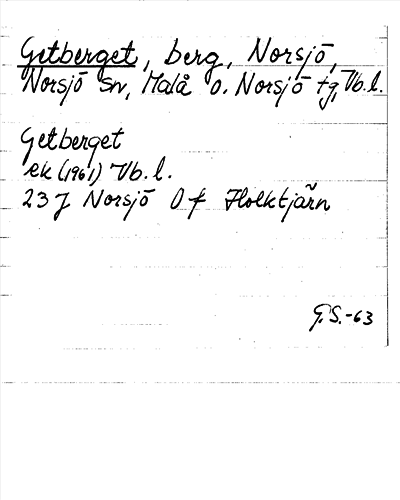 Getberget, berg, Norsjö,
Norsjö sn, Malå o. Norsjö tg, Vb.l.
Getberget
ek (1961) Vb. l.
23 J Norsjö 0 f Holktjärn
G.S.-63